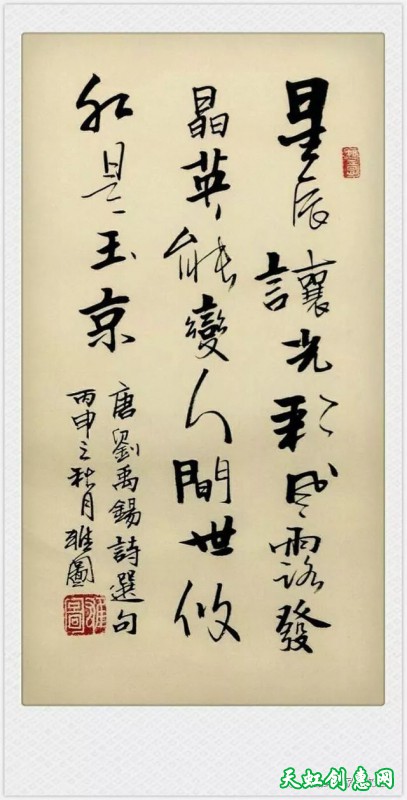 星辰讓光彩風露發
晶英能變人間世攸
然是玉京
唐劉禹錫詩選句
丙申之秋月雄圖
天虹创意网